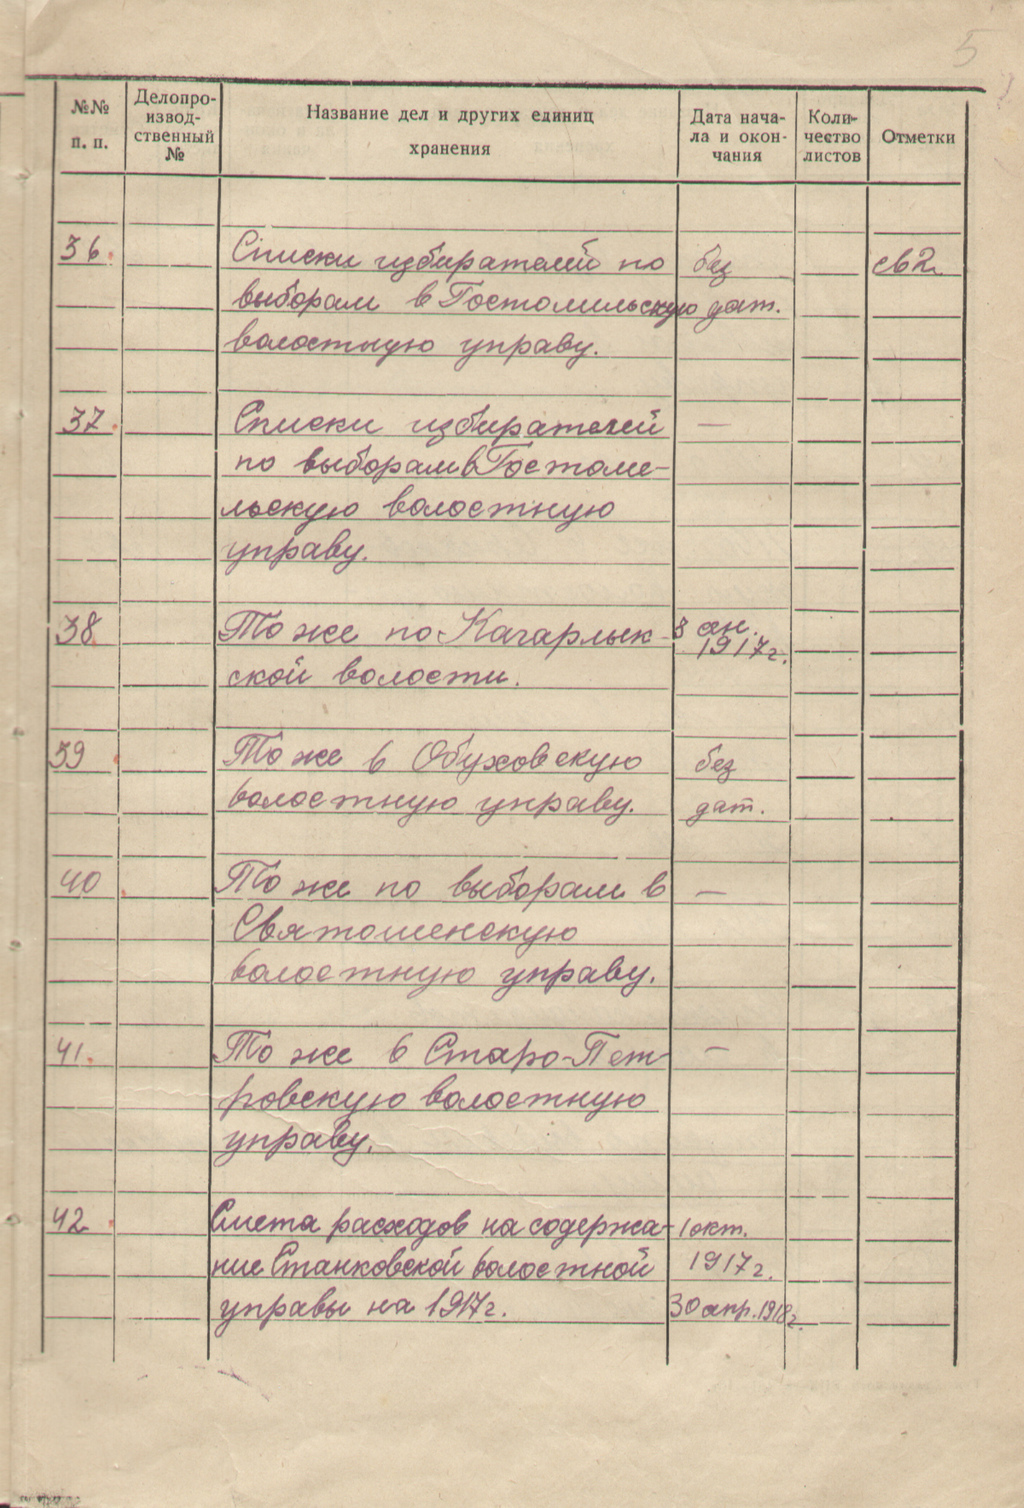 5
№№ п. п.
Делопро-
извод-
ственный
№
Название дел и других единиц
хранения
Дата нача-
ла и окон-
чания
Коли-
чество
листов
Отметки
36. Списки избирателей по без св2.
выборам в Гостомильскую дат.
волостную управу.
37. Списки избирателей —
по выборам в Гостоми-
льскую волостную
управу.
38. То же по Кагарлык-
ской волости.
1917г.
39 То же в Обуховскую без
волостную управу. дат.
40 То же по выборам в —
Святошенскую
волостную управу.
41. То же в Старо-Пет- —
ровскую волостную
управу.
42. Смета расходов на содержа- 1 окт.
ние Станковской волостной 1917г.
управы на 1917г. 30 апр. 1918г.